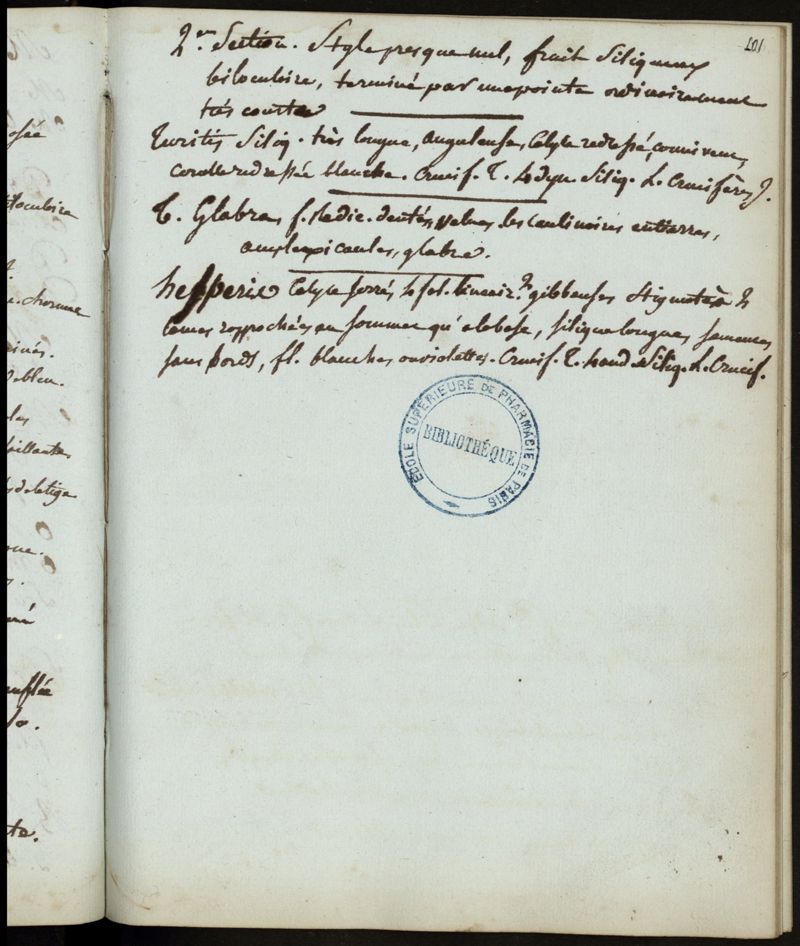 101
2.e Section. Style presque nul, fruit siliqueux
biloculaire, terminé par une pointe ordinairement
très courte
Turitis Siliq. très longue, anguleuse, Calyce redressé, connivent,
corolle redressée blanche. Crucif. T. 4 dyn. Siliq. L. Crucifères J.
T. Glabra, f. Radic. dentées, velues, les caulinaires entierres,
amplexicaules, glabre.
hesperis Calyce serré, 4 fol. lineair. 2 gibbeuses Stigmate à 2
lames rapprochées au sommet
sans bords, fl. blanches ou violettes. Crucif. T. Siliq. L. Crucif.
ÉCOLE SUPÉRIEURE DE PHARMACIE DE PARIS
BIBLIOTHÈQUE
osée
iloculaire
inés.
les
aillantes
s de la tige
nflée